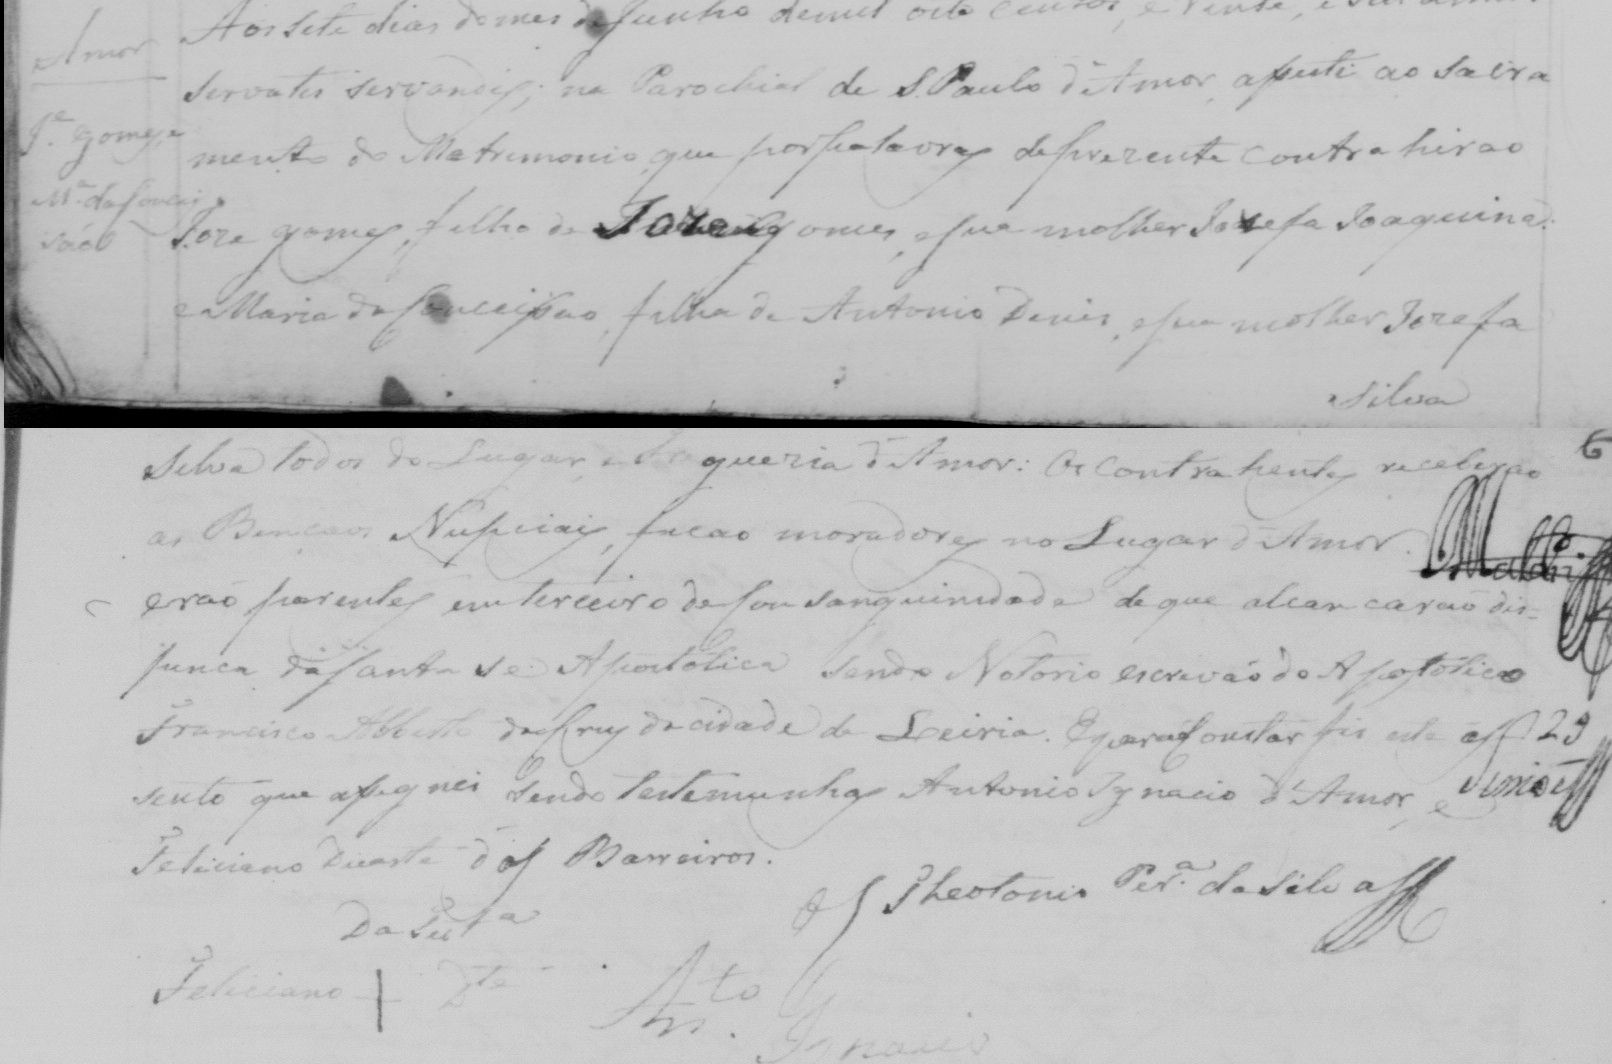 Amor
Je. Gomes, e
Ma. da Concei
saõ
Aos sete dias do mes de Junho de mil oito centos, e vente, e seis annos
servatis servandis; na Parochial de S. Paulo d'Amor, assisti ao sacra
mento do Matrimonio, que por palavras de prezente contrahirao
Joze Gomes, filho de Joze Gomes, e sua molher Jozefa Joaquina:
e Maria da Conceissao, filha de Antonio Denis, e sua molher Jozefa
silva
6
silva todos do Lugar, e Freguezia d'Amor: Os Contrahentes receberao
as Bençaos Nupciais, ficao moradores no Lugar d'Amor.
eraõ parentes em terceiro de Consanguinidade de que alcancaraõ dis-
punca da Santa Sé Apostolica sendo Notorio escrivaõ do Apostolico
Francisco Alberto da Cruz da cidade de Leiria. E para Constar fis este as
sento que assignei sendo testemunhas Antonio Ignacio d'Amor, e
Feliciano Duarte dos Barreiros.
O Theotonio Pera. da Silva
Da Testa
Feliciano + Dte
Anto. Ignacio